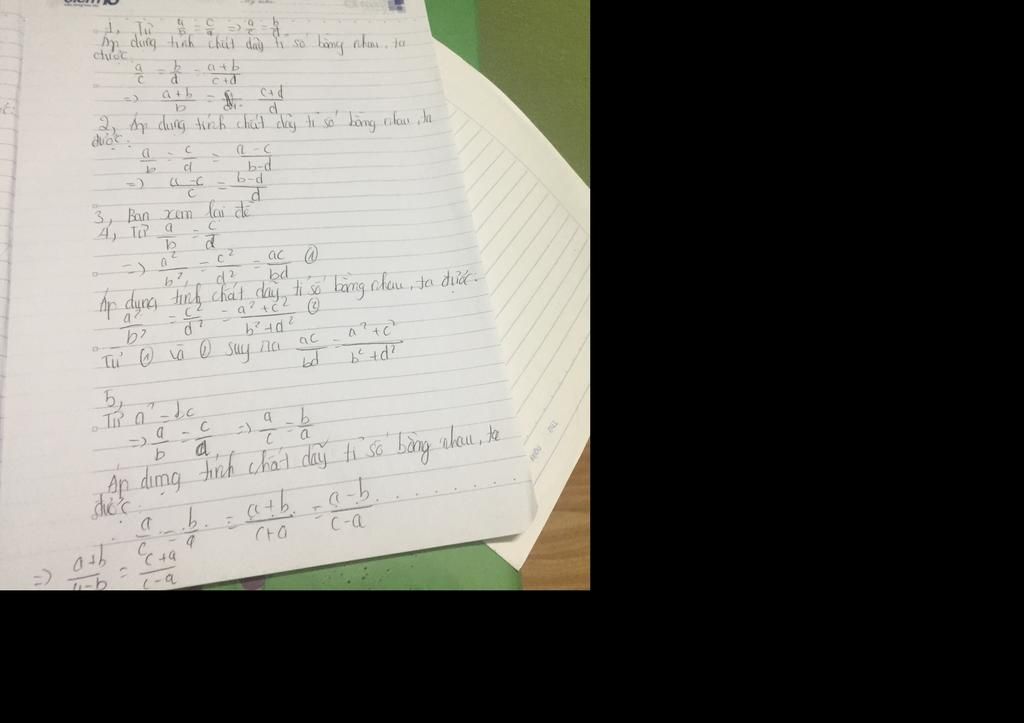 1, Từ a/b = c/d => a/c = b/d
Áp dụng tính chất dãy tỉ số bằng nhau, ta
được:
a/c = b/d = (a+b)/(c+d)
=> (a+b)/b = (c+d)/d
2, Áp dụng tính chất dãy tỉ số bằng nhau, ta
được:
a/b = c/d = (a-c)/(b-d)
=> (a-c)/c = (b-d)/d
3, Bạn xem lại đề
4, Từ a/b = c/d
=> a²/b² = c²/d² = ac/bd ①
Áp dụng tính chất dãy tỉ số bằng nhau, ta được:
a²/b² = c²/d² = (a²+c²)/(b²+d²) ②
Từ ① và ② suy ra ac/bd = (a²+c²)/(b²+d²)
5,
Từ a² = bc
=> a/b = c/a => a/c = b/a
Áp dụng tính chất dãy tỉ số bằng nhau, ta
được:
a/c = b/a = (a+b)/(c+a) = (a-b)/(c-a)
=> (a+b)/(a-b) = (c+a)/(c-a)